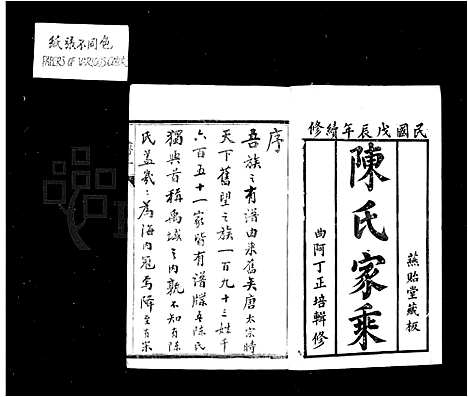 紙張不同色
PAPERS OF VARIOUS COLOR
民國戊辰年續修
燕貽堂藏板
陳氏家乘
曲阿丁正培輯修
序
吾族之有譜由來舊矣唐太宗時
天下舊望之族一百九十三姓千
六百五十一家皆有譜牒
陳氏
獨與首稱禹域之內孰不知有陳
氏蓋幾幾為海內冠焉降至有宋